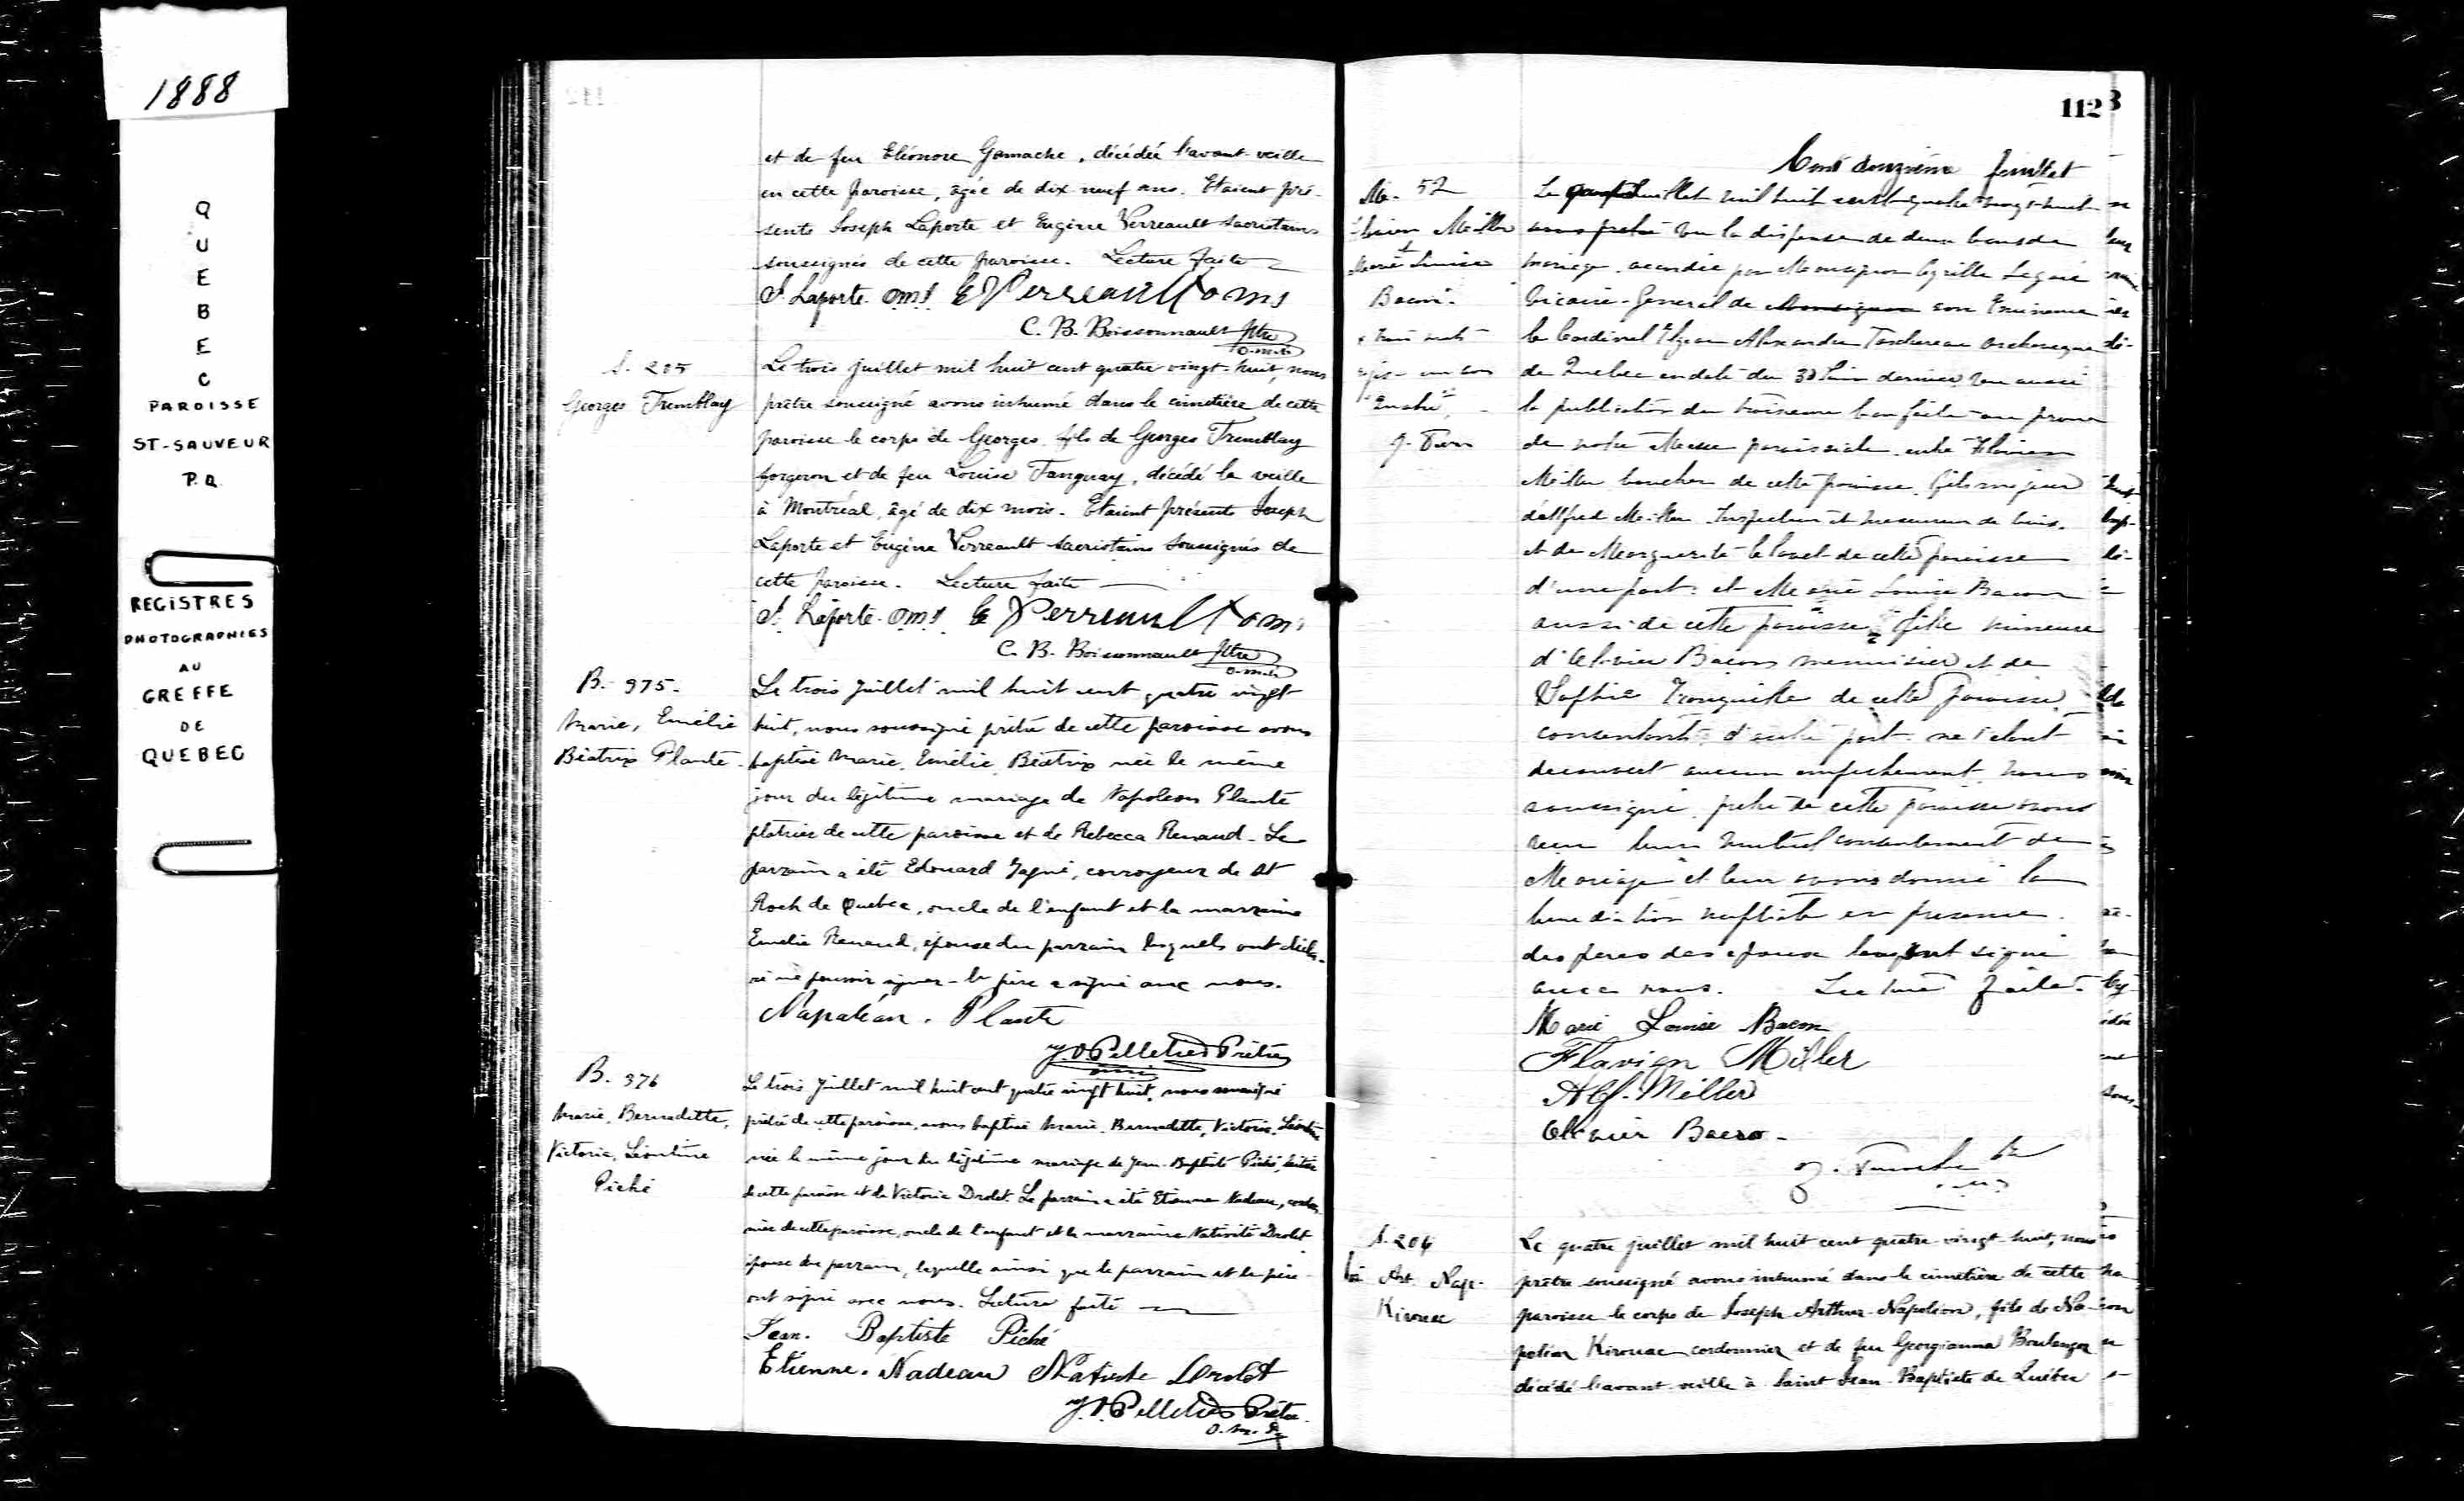 1888
QUEBEC
PAROISSE
ST-SAUVEUR
P.Q.
REGISTRES
PHOTOGRAPHIES
AU
GREFFE
DE
QUEBEC
et de feu Eléonore Gamache, décédée l'avant-veille
en cette paroisse, âgée de dix-neuf ans. Etaient pré-
sents Joseph Laporte et Eugène Verreault sacristains
soussignés de cette paroisse. Lecture faite
J. Laporte oms E Verreault oms
C. B. Boissonnault Ptre
o.m.i.
S. 205
Georges Tremblay
Le trois juillet mil huit cent quatre vingt-huit, nous
prêtre soussigné avons inhumé dans le cimetière de cette
paroisse le corps de Georges, fils de Georges Tremblay
forgeron et de feu Louise Tanguay, décédé la veille
à Montréal, âgé de dix mois. Etaient présents Joseph
Laporte et Eugène Verreault sacristains soussignés de
cette paroisse. Lecture faite
J. Laporte oms E Verreault oms
C. B. Boissonnault Ptre
o.m.i.
B. 375.
Marie, Emélie
Béatrix Plante.
Le trois Juillet mil huit cent quatre vingt
huit, nous soussigné prêtre de cette paroisse avons
baptisé Marie, Emélie, Béatrix née le même
jour du légitime mariage de Napoleon Plante
platrier de cette paroisse et de Rebecca Renaud. Le
parrain a été Edouard Gagné, corroyeur de St
Roch de Quebec, oncle de l'enfant et la marraine
Emelie Renaud, épouse du parrain lesquels ont décla-
ré ne pouvoir signer - le père a signé avec nous.
Napoléon. Plante
Pelletier Prêtre
omi
B. 376
Marie, Bernadette,
Victoria, Léontine
Piché
Le trois Juillet mil huit cent quatre vingt huit, nous soussigné
prêtre de cette paroisse, avons baptisé Marie, Bernadette, Victoria, Léontine
née le même jour du légitime mariage de Jean-Baptiste Piché,
de cette paroisse et de Victoria Drolet. Le parrain a été Etienne Nadeau, cordon-
nier de cette paroisse, oncle de l'enfant et la marraine Nativité Drolet
épouse du parrain, laquelle ainsi que le parrain et le père
ont signé avec nous. Lecture faite
Jean. Baptiste Piché
Etienne. Nadeau Nativité Drolet
Pelletier Prêtre.
o.m.i.
112
Cent douzième feuillet
M. 52
Flavien Miller
et
Marie Louise
Bacon.
Le Juillet mil huit cent quatre vingt-huit
vu la dispense de deux bans de
mariage accordée par Monseigneur Cyrille Legaré
Vicaire-General de Monseigneur son Eminence
le Cardinal Elzear Alexandre Taschereau archeveque
de Quebec en date du 30 Juin dernier, vu aussi
la publication du troisieme ban faite au prone
de notre Messe paroissiale entre Flavien
Miller boucher de cette paroisse, fils majeur
d'Alfred Miller Inspecteur et mesureur de bois,
et de Marguerite de cette paroisse
d'une part: et Marie Louise Bacon
aussi de cette paroisse fille mineure
d'Olivier Bacon menuisier et de
Sophie de cette paroisse,
d'autre part: ne s'etant
decouvert aucun empechement, nous
soussigné, prêtre de cette paroisse avons
recu leur mutuel consentement de
Mariage et leur avons donné la
benediction nuptiale en presence
des peres des epoux signé
avec nous. Lecture faite.
Marie Louise Bacon
Flavien Miller
Alf. Miller
Olivier Bacon
S. 206
Art. Nap.
Kirouac
Le quatre juillet mil huit cent quatre-vingt-huit, nous
prêtre soussigné avons inhumé dans le cimetière de cette
paroisse le corps de Joseph Arthur-Napoléon, fils de Na-
poléon Kirouac cordonnier et de feu Georgianna Boulanger
décédé l'avant-veille à Saint Jean-Baptiste de Québec